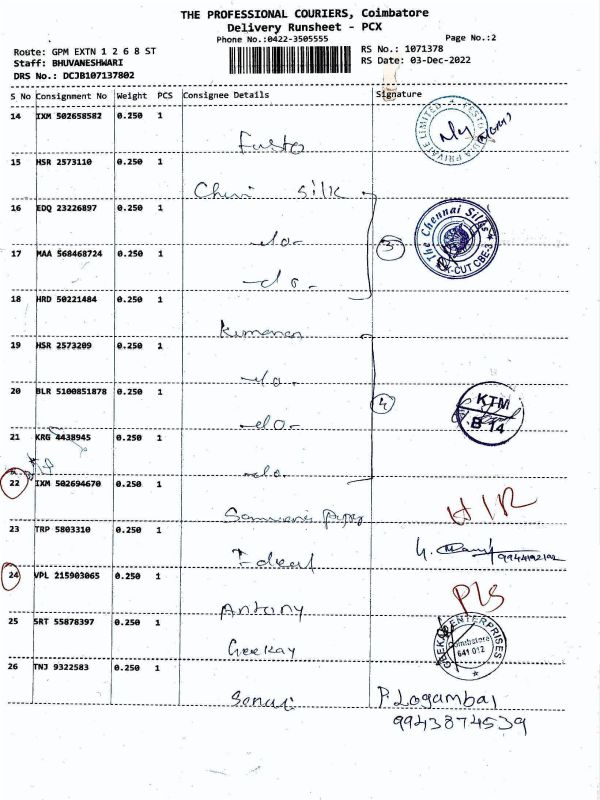 THE PROFESSIONAL COURIERS, Coimbatore
Delivery Runsheet - PCX
Phone No.:0422-3505555
Page No.:2
Route: GPM EXTN 1 2 6 8 ST
Staff: BHUVANESHWARI
DRS No.: DCJB107137802
RS No.: 1071378
RS Date: 03-Dec-2022
S No Consignment No Weight PCS Consignee Details Signature
14 IXM 502658582 0.250 1
PRIVATE LIMITED
15 HSR 2573110 0.250 1
silk
16 EDQ 23226897 0.250 1
-do-
3
The Chennai Silks
CUT CBE-3
17 MAA 568468724 0.250 1
-do-
18 HRD 50221484 0.250 1
Kumaran
19 HSR 2573209 0.250 1
-do-
20 BLR 5100851878 0.250 1
-do-
4
KTM
B 14
21 KRG 4438945 0.250 1
-do-
22 IXM 502694670 0.250 1
HIR
23 TRP 5803310 0.250 1
Ideal
24 VPL 215903065 0.250 1
Antony
Pls
25 SRT 55878397 0.250 1
Geekay
GEEKAY ENTERPRISES
Coimbatore
641 012
26 TNJ 9322583 0.250 1
P. Logambal
9943874539